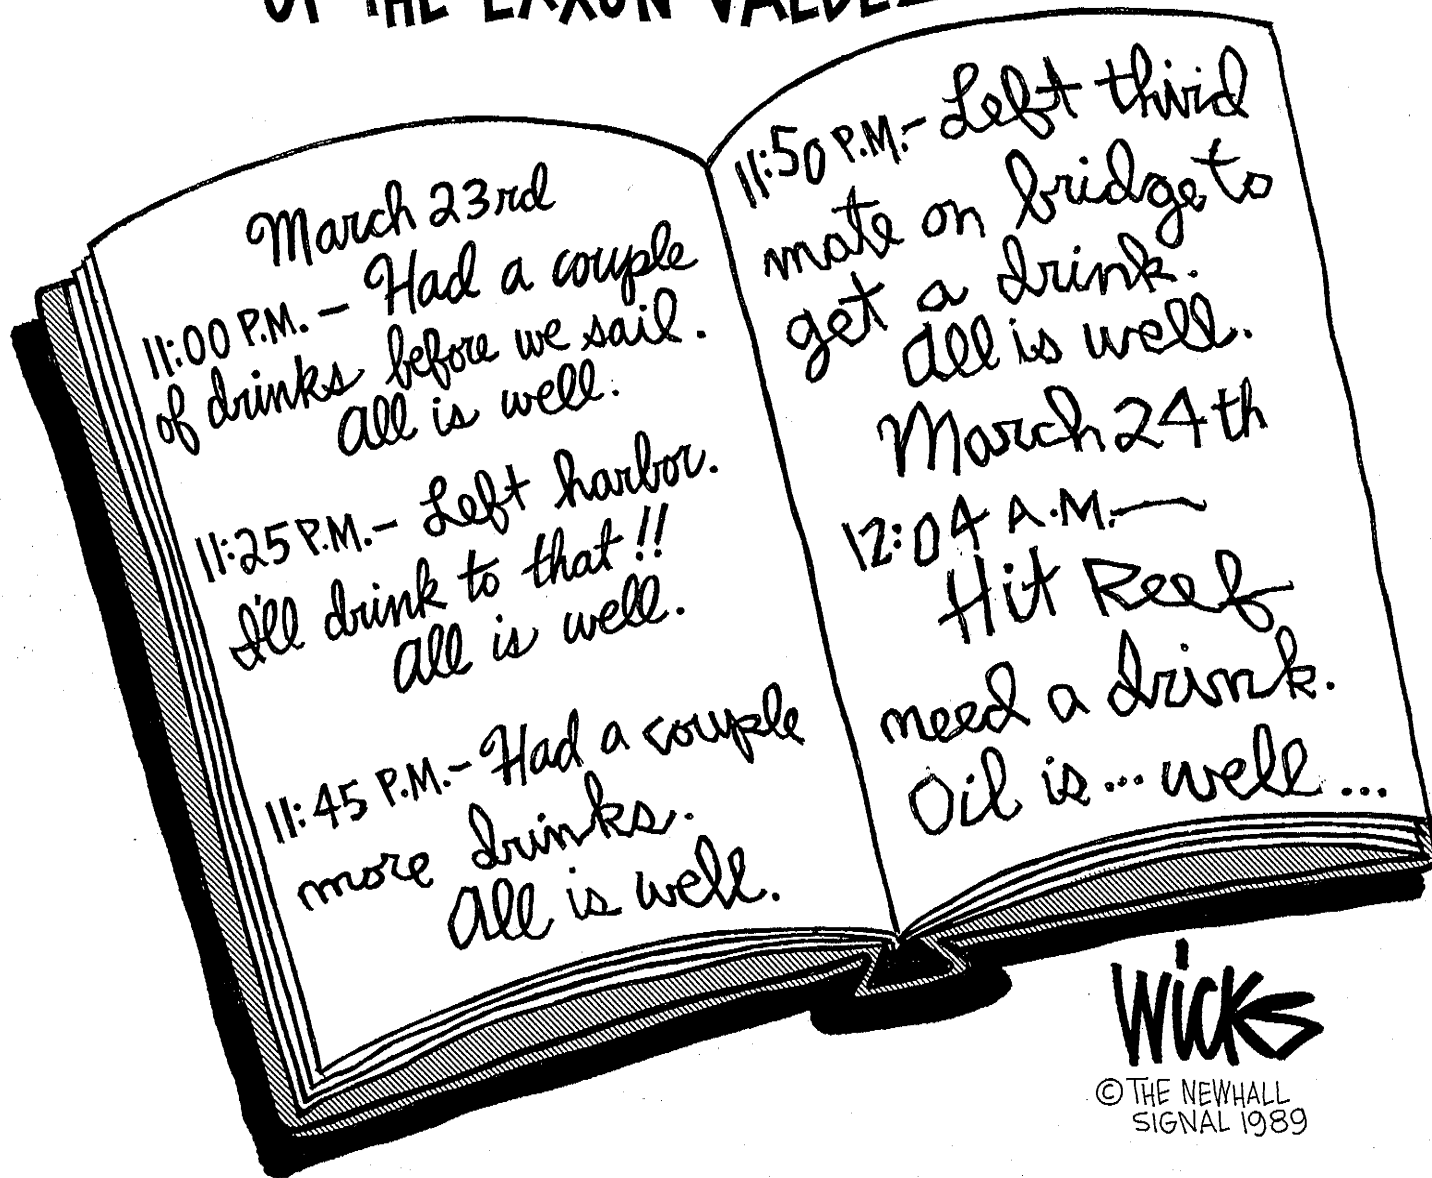 OF THE EXXON VALDEZ
March 23rd
11:00 P.M. — Had a couple
of drinks before we sail.
All is well.
11:25 P.M. — Left harbor.
I'll drink to that!!
All is well.
11:45 P.M. — Had a couple
more drinks.
All is well.
11:50 P.M. — Left third
mate on bridge to
get a drink.
All is well.
March 24th
12:04 A.M. —
Hit Reef
need a drink.
Oil is... well...
Wicks
© THE NEWHALL
SIGNAL 1989